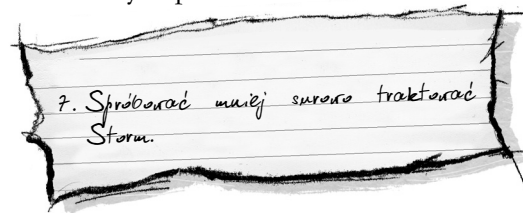 7. Spróbować mniej surowo traktować
Storm.